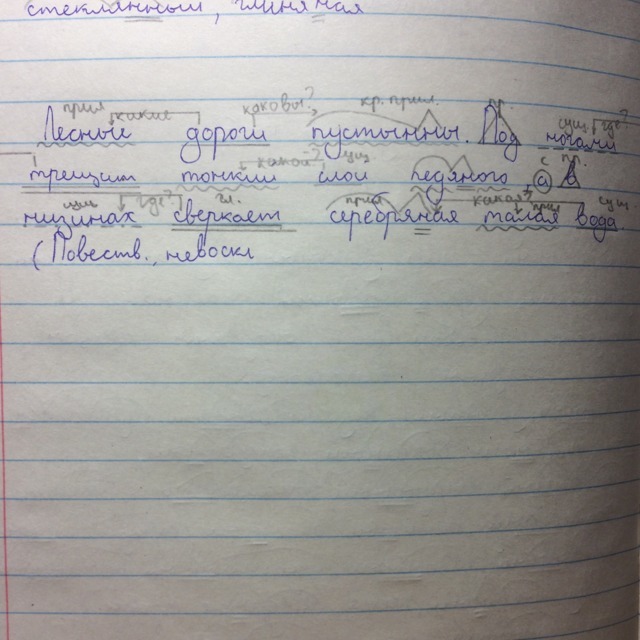 стеклянный, глиняная
прил какие каковы? кр. прил. пр. сущ. где?
Лесные дороги пустынны. Под ногами
какой? сущ с пр.
трещит тонкий слой ледяного а в
сущ где? гл. прил какая? прил сущ.
низинах сверкает серебряная талая вода.
(Повеств., невоскл